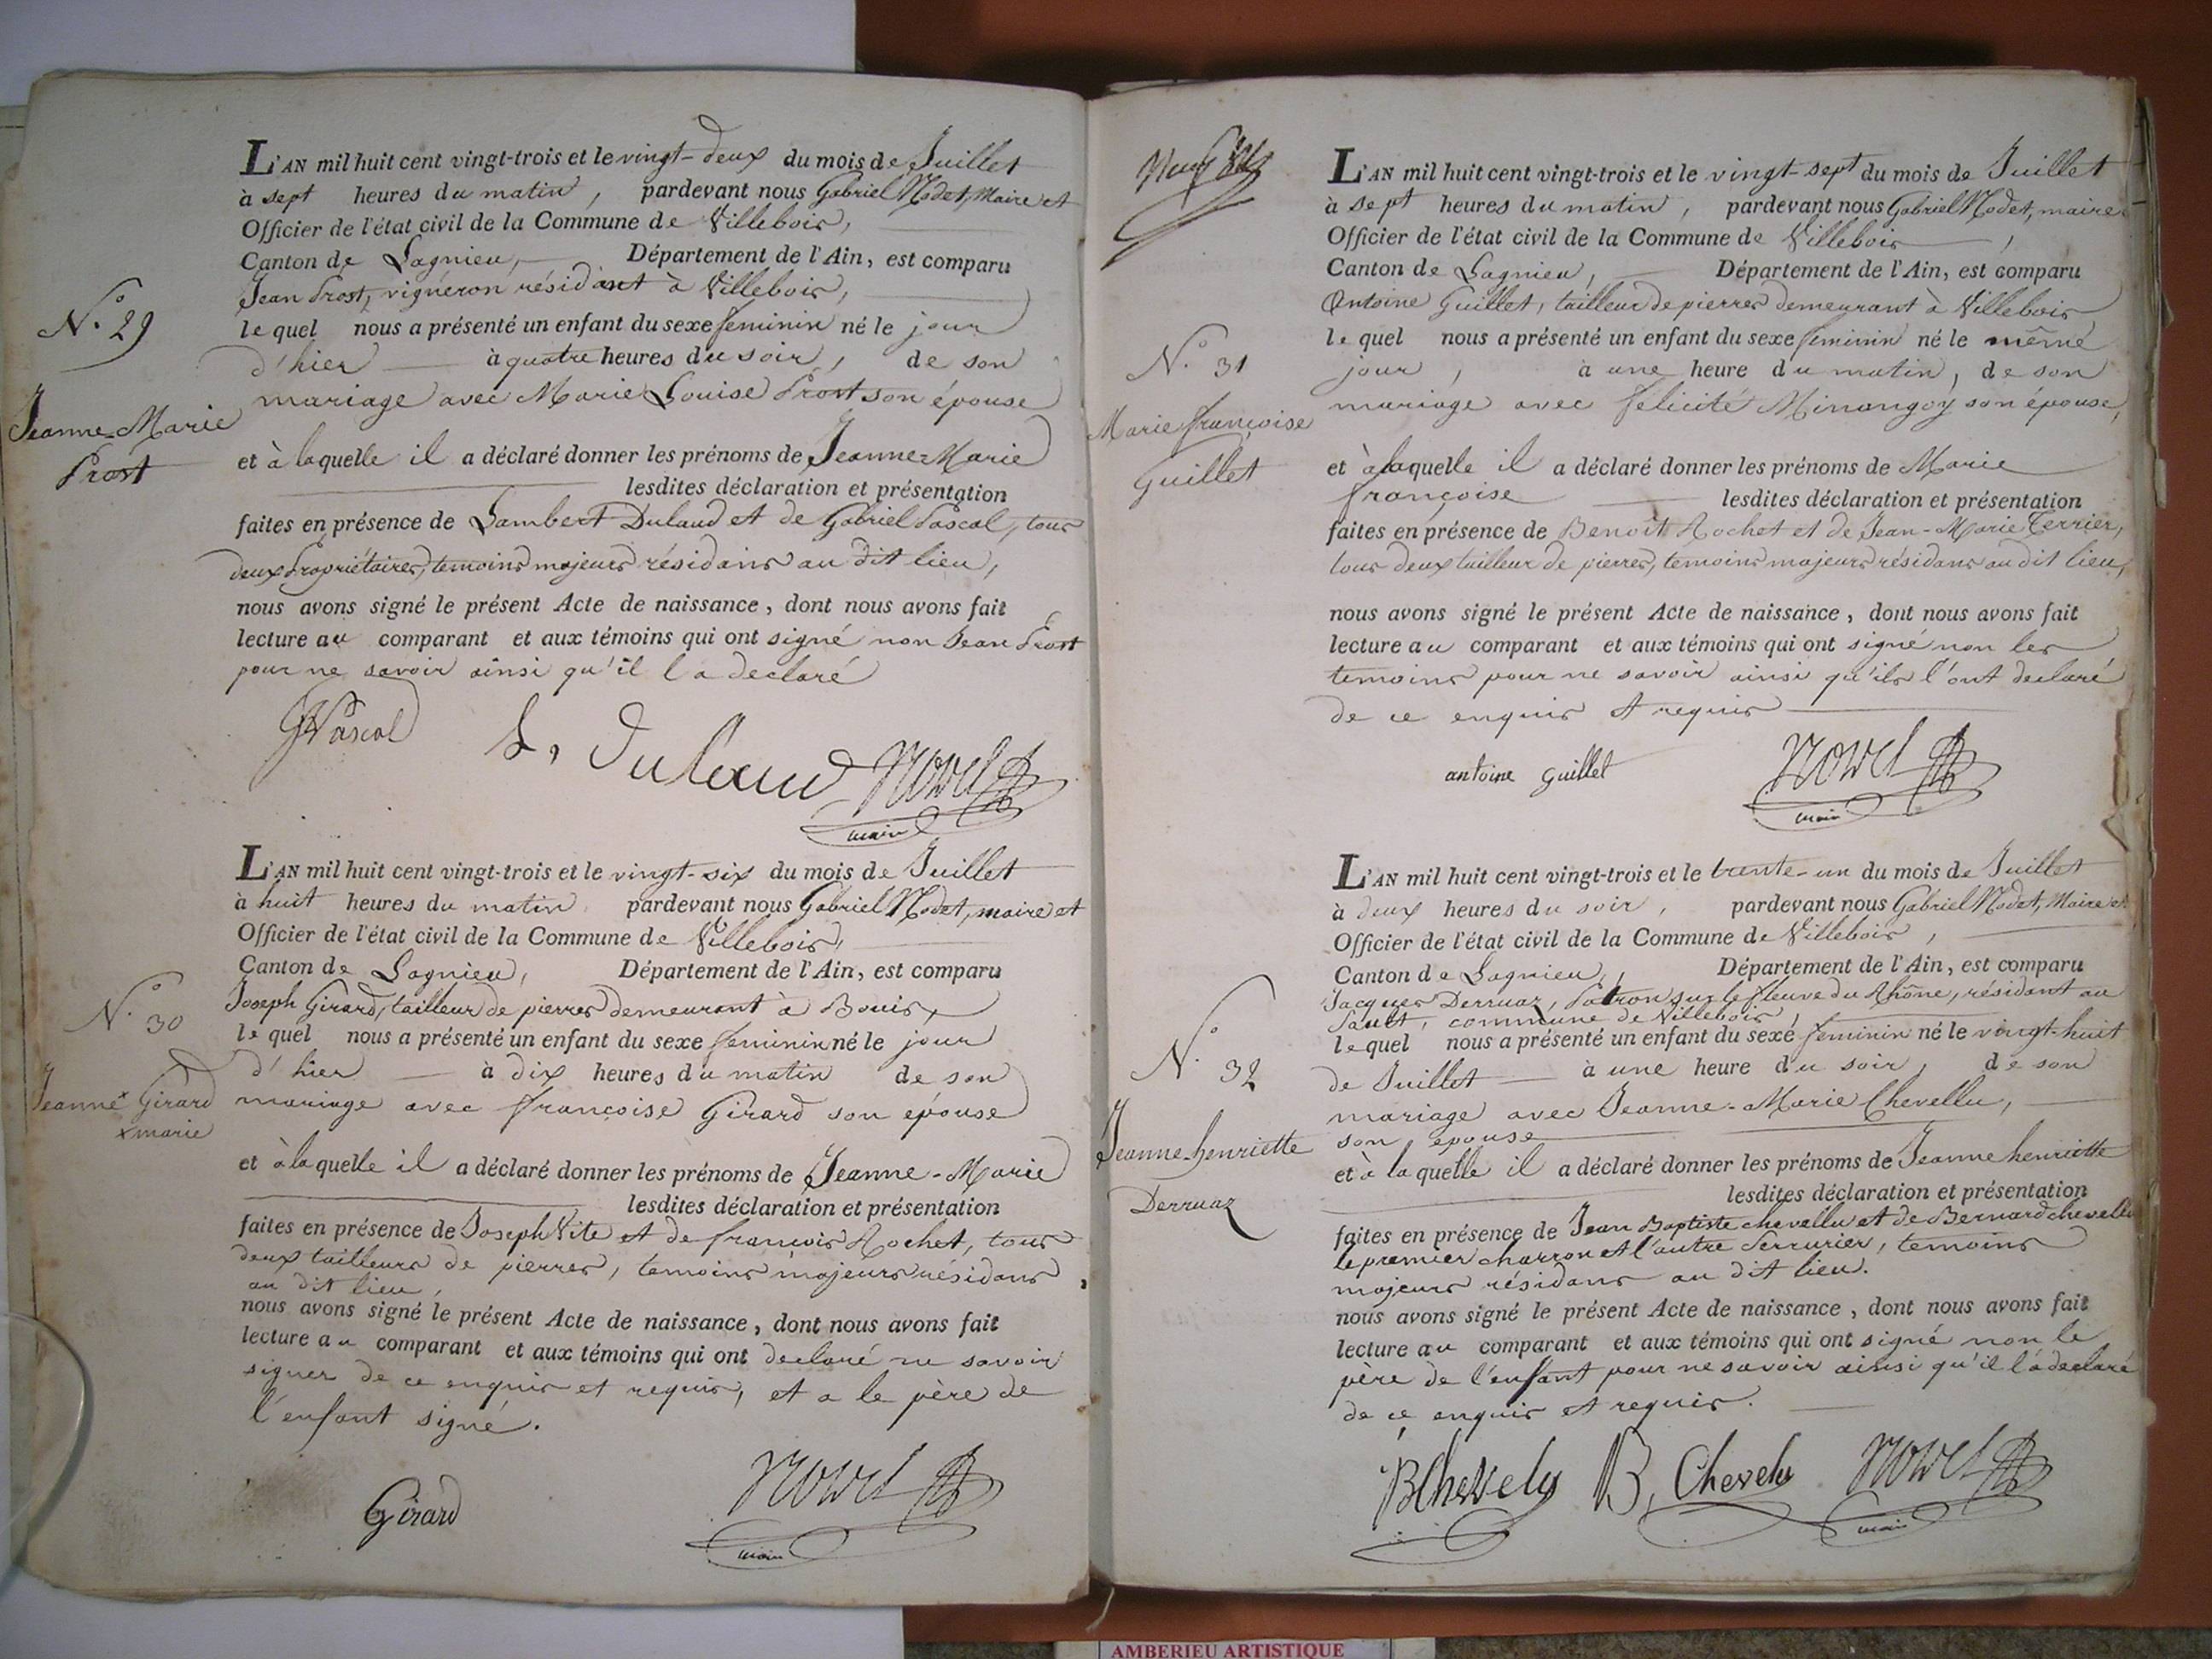 L'AN mil huit cent vingt-trois et le vingt-deux du mois de Juillet
à sept heures du matin, pardevant nous Gabriel Nodet, Maire et
Officier de l'état civil de la Commune de Villebois,
Canton de Lagnieu, Département de l'Ain, est comparu
Jean Prost, vigneron résidant à Villebois,
le quel nous a présenté un enfant du sexe feminin né le jour
d'hier à quatre heures du soir, de son
mariage avec Marie Louise Prost son épouse
et à laquelle il a déclaré donner les prénoms de Jeanne-Marie
lesdites déclaration et présentation
faites en présence de Lambert Dulaud et de Gabriel Pascal, tous
deux Propriétaires, temoins majeurs résidans au dit lieu,
nous avons signé le présent Acte de naissance, dont nous avons fait
lecture au comparant et aux témoins qui ont signé non Jean Prost
pour ne savoir ainsi qu'il l'a declaré
N.o 29
Jeanne-Marie
Prost
GPascal
L. Dulaud
maire
L'AN mil huit cent vingt-trois et le vingt-six du mois de Juillet
à huit heures du matin pardevant nous Gabriel Nodet, maire et
Officier de l'état civil de la Commune de Villebois,
Canton de Lagnieu, Département de l'Ain, est comparu
Joseph Girard, tailleur de pierres demeurant à Bouis,
le quel nous a présenté un enfant du sexe feminin né le jour
d'hier à dix heures du matin de son
mariage avec françoise Girard son épouse
et à laquelle il a déclaré donner les prénoms de Jeanne-Marie
lesdites déclaration et présentation
faites en présence de Joseph Vite et de françois Rochet, tous
deux tailleurs de pierres, temoins majeurs résidans
au dit lieu,
nous avons signé le présent Acte de naissance, dont nous avons fait
lecture au comparant et aux témoins qui ont declaré ne savoir
signer de ce enquis et requis, et a le père de
l'enfant signé.
N.o 30
Jeanne x Girard
x marie
Girard
maire
L'AN mil huit cent vingt-trois et le vingt-sept du mois de Juillet
à sept heures du matin, pardevant nous Gabriel Nodet, maire
Officier de l'état civil de la Commune de Villebois,
Canton de Lagnieu, Département de l'Ain, est comparu
Antoine Guillet, tailleur de pierres demeurant à Villebois
le quel nous a présenté un enfant du sexe feminin né le même
jour, à une heure du matin, de son
mariage avec félicité Minangoy son épouse,
et à laquelle il a déclaré donner les prénoms de Marie
françoise lesdites déclaration et présentation
faites en présence de Benoît Rochet et de Jean-Marie Terrier,
tous deux tailleur de pierres, temoins majeurs résidans au dit lieu,
nous avons signé le présent Acte de naissance, dont nous avons fait
lecture au comparant et aux témoins qui ont signé non les
temoins pour ne savoir ainsi qu'ils l'ont declaré
de ce enquis et requis
N.o 31
Marie françoise
Guillet
antoine guillet
maire
L'AN mil huit cent vingt-trois et le trente-un du mois de Juillet
à deux heures du soir, pardevant nous Gabriel Nodet, Maire et
Officier de l'état civil de la Commune de Villebois,
Canton de Lagnieu, Département de l'Ain, est comparu
Jacques Derruaz, Patron sur le fleuve du Rhône, résidant au
Sault, commune de Villebois,
le quel nous a présenté un enfant du sexe feminin né le vingt-huit
de Juillet à une heure du soir, de son
mariage avec Jeanne-Marie Chevellu,
son épouse
et à la quelle il a déclaré donner les prénoms de Jeanne henriette
lesdites déclaration et présentation
faites en présence de Jean Baptiste chevellu et de Bernard chevellu
le premier charron et l'autre Serrurier, temoins
majeurs résidans au dit lieu.
nous avons signé le présent Acte de naissance, dont nous avons fait
lecture au comparant et aux témoins qui ont signé non le
père de l'enfant pour ne savoir ainsi qu'il l'a declaré
de ce enquis et requis.
N.o 32
Jeanne-henriette
Derruaz
B Chevelu
B. Chevelu
maire
AMBERIEU ARTISTIQUE